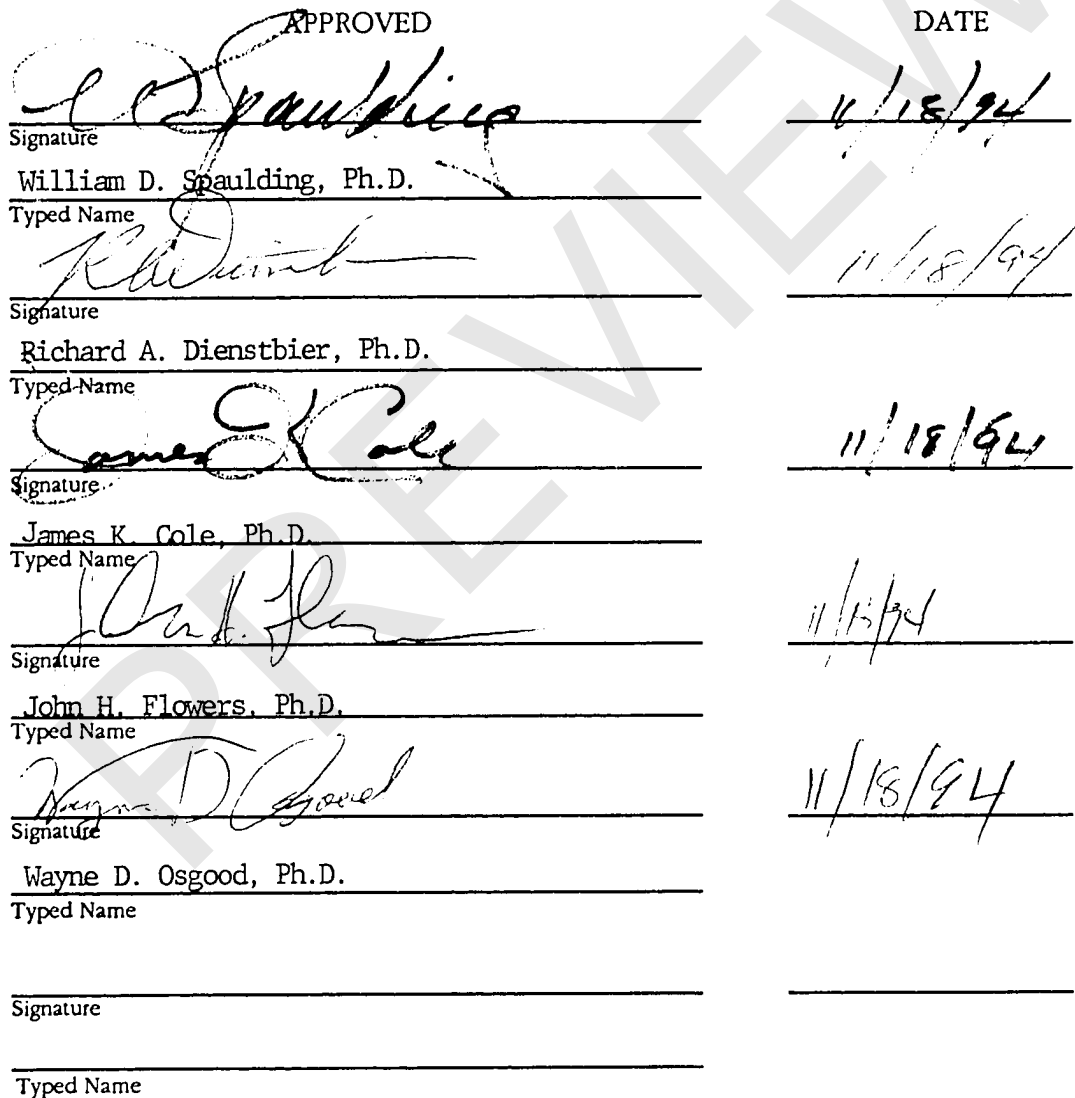 APPROVED DATE
Spaulding 11/18/94
Signature
William D. Spaulding, Ph.D.
Typed Name
11/18/94
Signature
Richard A. Dienstbier, Ph.D.
Typed Name
James K Cole 11/18/94
Signature
James K. Cole, Ph.D.
Typed Name
John H. Flowers 11/18/94
Signature
John H. Flowers, Ph.D.
Typed Name
Wayne D Osgood 11/18/94
Signature
Wayne D. Osgood, Ph.D.
Typed Name
Signature
Typed Name
PREVIEW